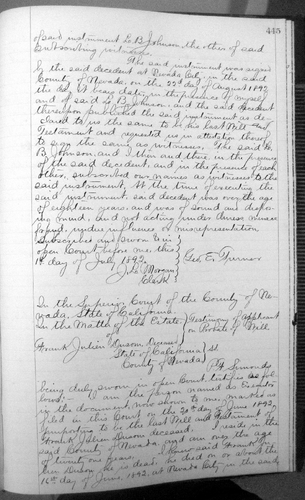 445
of said instrument L. B. Johnson, the other of said
subscribing witnesses.
The said instrument was signed
by the said decedent at Nevada City, in the said
County of Nevada, on the 22d day of August 1892
the day it bears date, in the presence of myself
and of said L. B. Johnson, and the said decedent
thereupon published the said instrument as, de-
clared to us the same to be his last Will and
Testament and requested us in attestation thereof
to sign the same as witnesses. The said L.
B. Johnson, and I then and there, in the presence
of the said decedent and in the presence of each
other, subscribed our names as witnesses to the
said instrument. At the time of executing the
said instrument, said decedent was over the age
of eighteen years, and was of sound and dispos-
ing mind, and not acting under duress, menace
fraud, undue influence or misrepresentation
Subscribed and sworn to in
open Court before me, this
day of July 1892. Geo. E. Turner
J. L. Morgan
Clerk
In the Superior Court of the County of Ne-
vada, State of California.
In the Matter of the Estate Testimony of Applicant
of on Probate of Will
Frank Julien Deceased
State of California ss
County of Nevada
Simonds
being duly sworn in open Court, testifies as fol-
lows:- I am the person named as Executor
in the document, now shown to me, marked as
filed in this Court on the 20th day of June 1892,
purporting to be the last Will and Testament of
Frank Julien deceased. I reside in the
said County of Nevada, and am over the age
of twenty one years. I knew said Frank Ju-
lien he is dead. he died on or about the
16th day of June, 1892, at Nevada City in the said